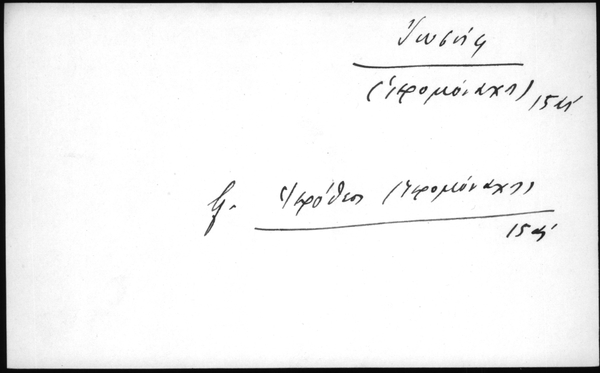 Ἰωσήφ
(ἱερομόναχος) 15 αἰ
βλ. Ἱερόθεος (ἱερομόναχος)
15 αἰ